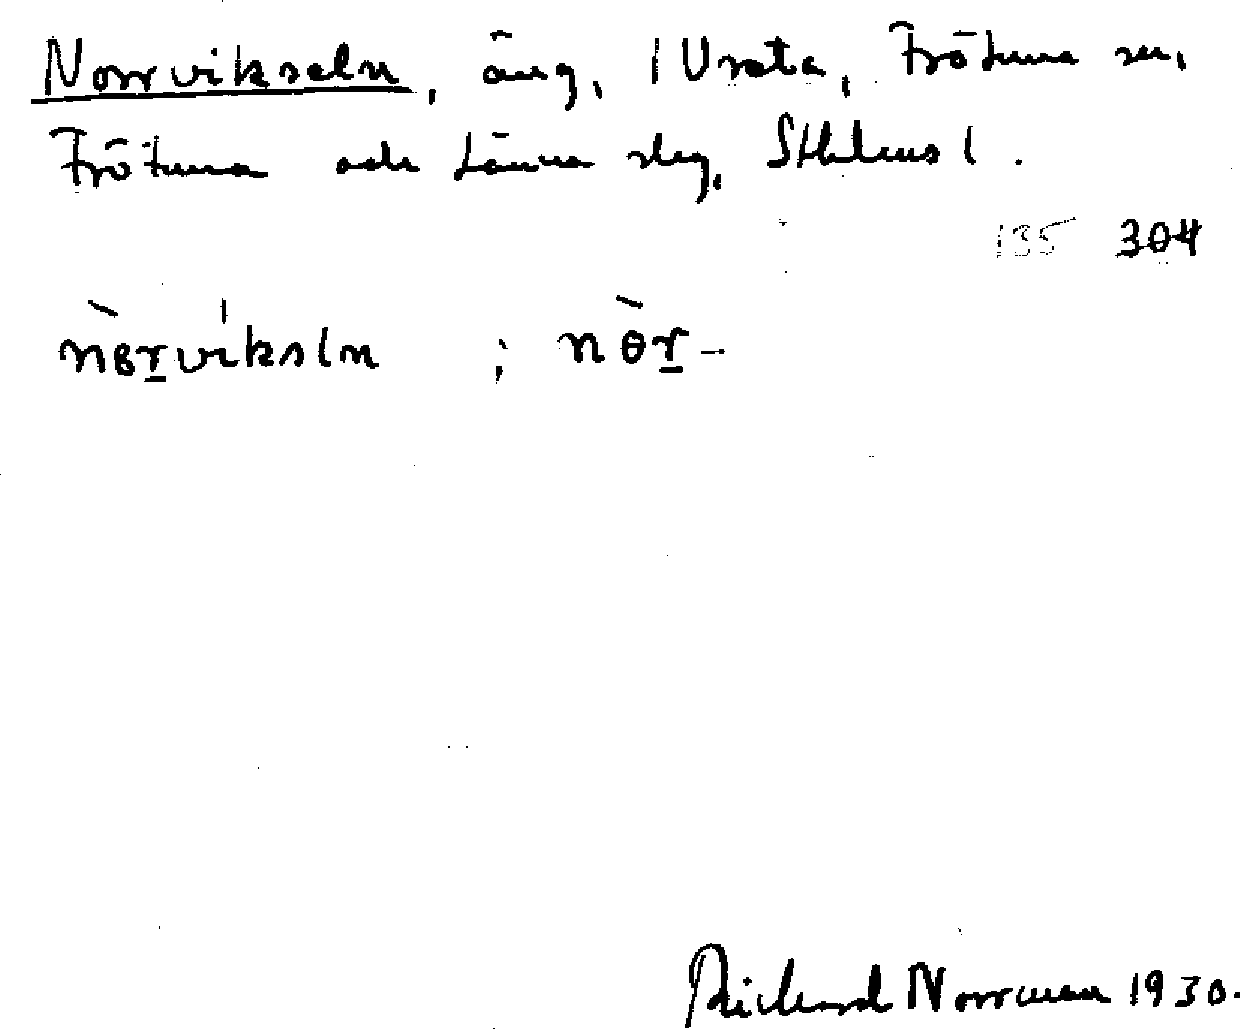 Norrvikseln, äng, i Vreta, Frötuna sn,
Frötuna och Länna slg, Sthlms l.
135 304
nɵrviksln ; nɵr-
Richard Norrman 1930.